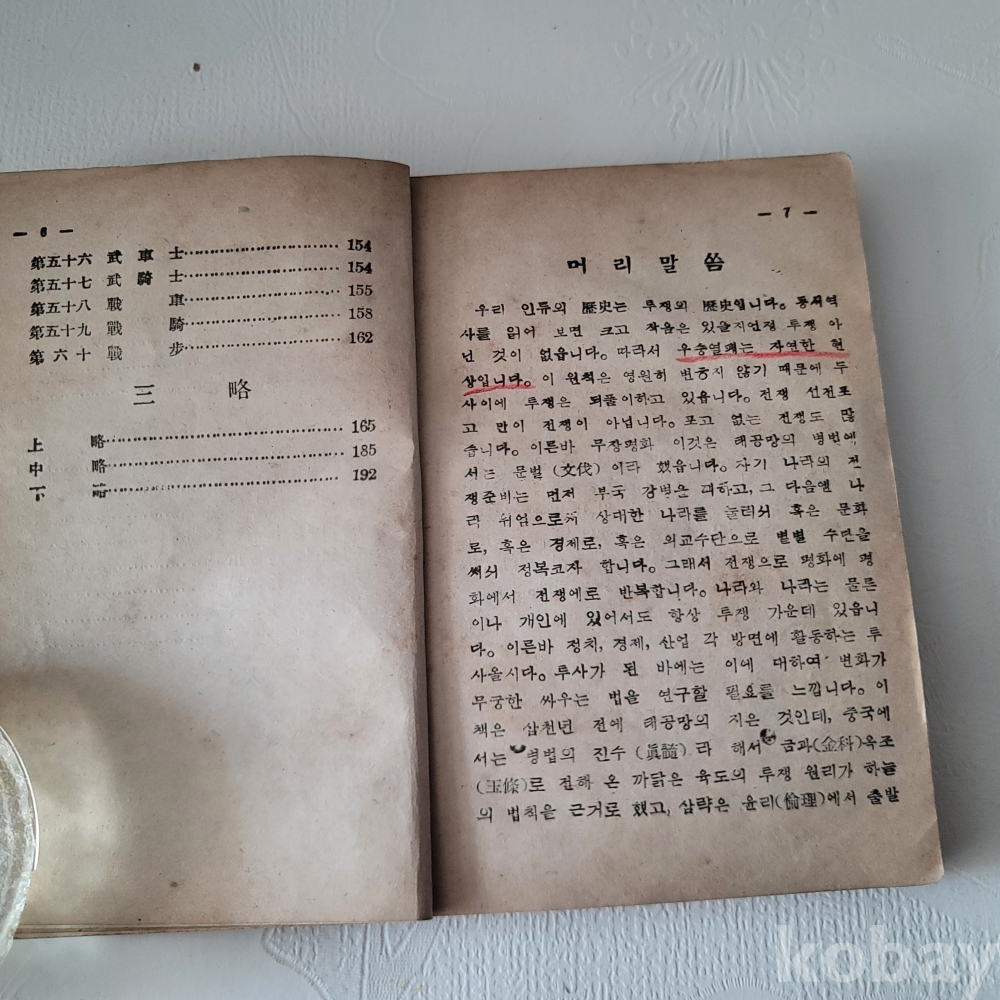 — 6 —
第五十六 武車士 154
第五十七 武騎士 154
第五十八 戰車 155
第五十九 戰騎 158
第六十 戰步 162
三略
上略 165
中略 185
下略 192
— 7 —
머리말씀
우리 인류의 歷史는 투쟁의 歷史입니다. 동서역
사를 읽어 보면 크고 작음은 있을지언정 투쟁 아
닌 것이 없읍니다. 따라서 우승열패는 자연한 현
상입니다. 이 원칙은 영원히 변하지 않기 때문에 두
사이에 투쟁은 되풀이하고 있읍니다. 전쟁 선전포
고 만이 전쟁이 아닙니다. 포고 없는 전쟁도 많
습니다. 이른바 무장평화 이것은 태공망의 병법에
서는 문벌 (文伐) 이라 했읍니다. 자기 나라의 전
쟁준비는 먼저 부국 강병은 꾀하고, 그 다음엔 나
라 위엄으로써 상대한 나라를 눌러서 혹은 문화
로, 혹은 경제로, 혹은 외교수단으로 별별 수면을
써서 정복코자 합니다. 그래서 전쟁으로 평화에 평
화에서 전쟁에로 반복합니다. 나라와 나라는 물른
이나 개인에 있어서도 항상 투쟁 가운데 있읍니
다. 이른바 정치, 경제, 산업 각 방면에 활동하는 투
사올시다. 투사가 된 바에는 이에 대하여 변화가
무궁한 싸우는 법을 연구할 필요를 느낍니다. 이
책은 삼천년 전에 태공망의 지은 것인데, 중국에
서는 병법의 진수 (眞髓) 라 해서 금과(金科)옥조
(玉條)로 전해 온 까닭은 육도의 투쟁 원리가 하늘
의 법칙을 근거로 했고, 삼략은 윤리(倫理)에서 출발
kobay